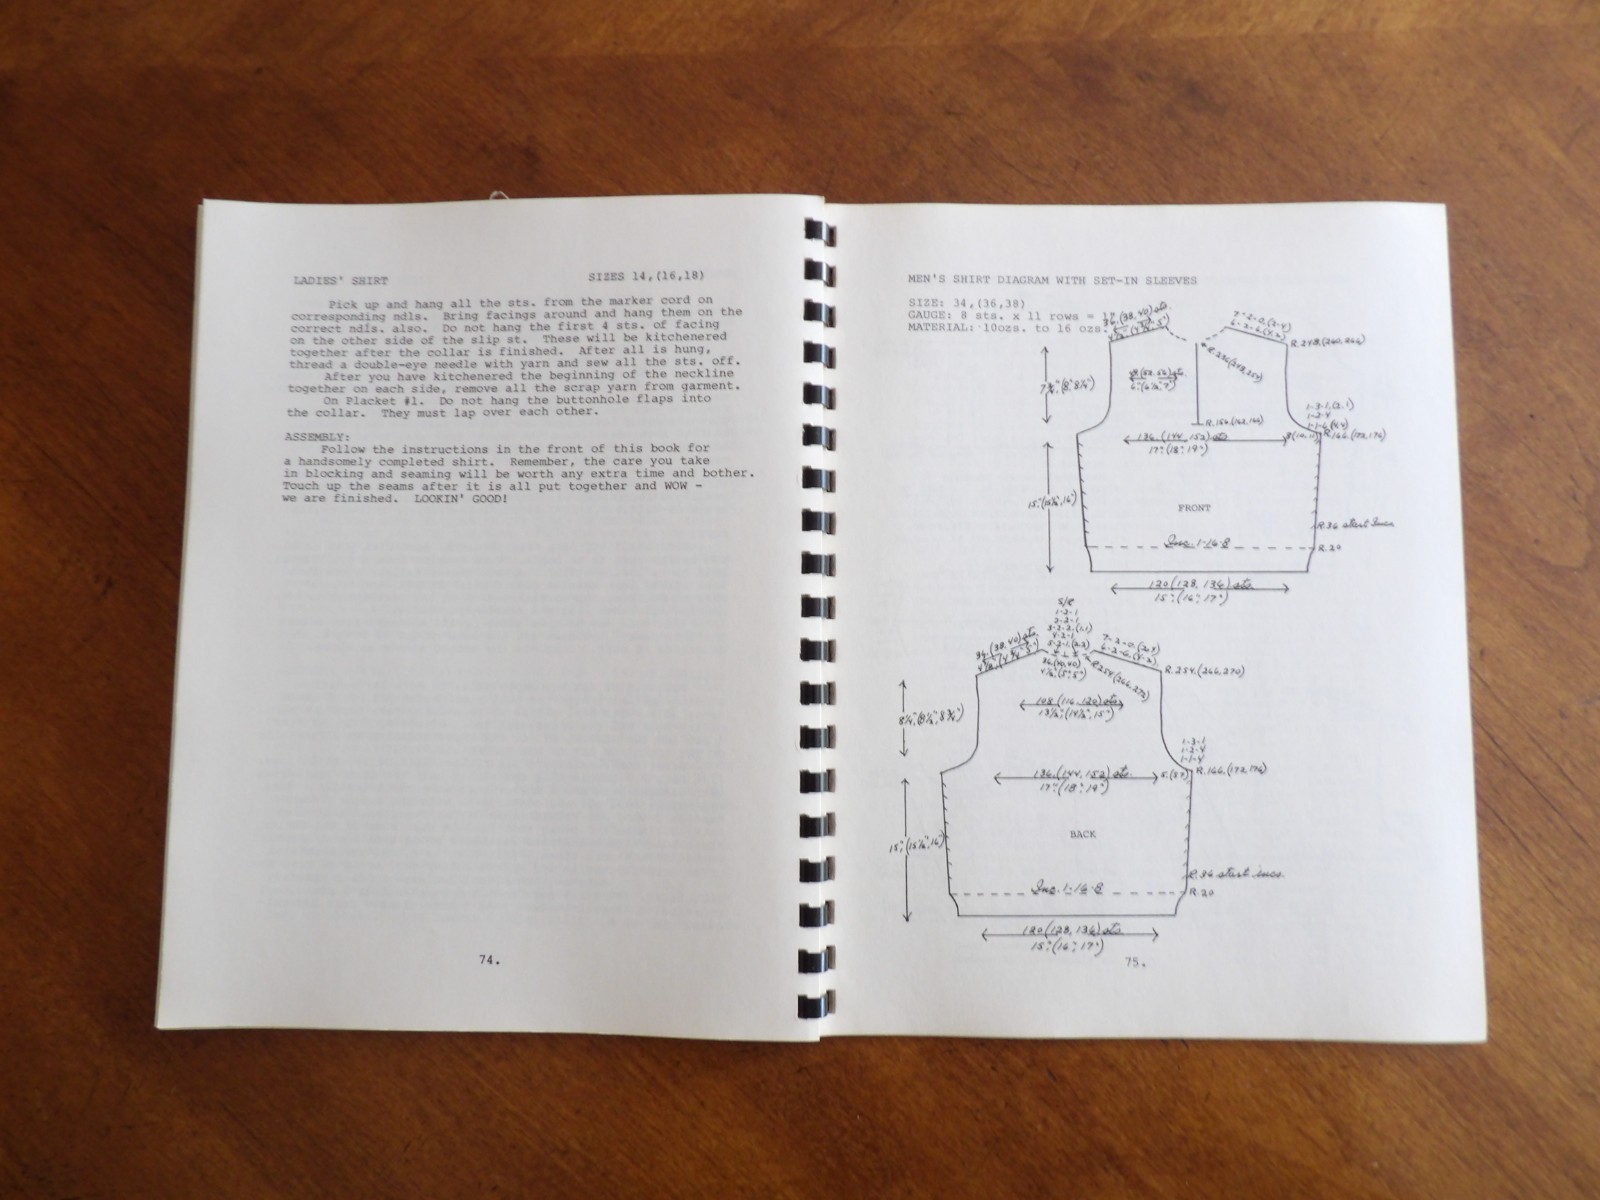 LADIES' SHIRT SIZES 14,(16,18)
Pick up and hang all the sts. from the marker cord on
corresponding ndls. Bring facings around and hang them on the
correct ndls. also. Do not hang the first 4 sts. of facing
on the other side of the slip st. These will be kitchenered
together after the collar is finished. After all is hung,
thread a double-eye needle with yarn and sew all the sts. off.
After you have kitchenered the beginning of the neckline
together on each side, remove all the scrap yarn from garment.
On Placket #1. Do not hang the buttonhole flaps into
the collar. They must lap over each other.
ASSEMBLY:
Follow the instructions in the front of this book for
a handsomely completed shirt. Remember, the care you take
in blocking and seaming will be worth any extra time and bother.
Touch up the seams after it is all put together and WOW -
we are finished. LOOKIN' GOOD!
74.
MEN'S SHIRT DIAGRAM WITH SET-IN SLEEVES
SIZE: 34,(36,38)
GAUGE: 8 sts. x 11 rows =
MATERIAL: 10ozs. to 16 ozs.
36.(38,40) sts.
7-2-0,(2-4)
R.248.(260,266)
R.156.(162,165)
1-3-1,(2,1)
1-2-4
R.166.(172,176)
136.(144,152) sts
17"(18",19")
15"(15½",16")
FRONT
R.36 start Incs
Inc. 1-16-8
R.20
120(128,136) sts.
15"(16",17")
S/R
1-2-1
2-2-1
4-2-1
36.(38,40) sts.
R.254(266,272)
R.254.(266,270)
8¼"(8½",8¾")
108(116,120) sts
13½"(14½",15")
1-3-1
1-2-4
1-1-4
R.166.(172,176)
136.(144,152) sts.
17"(18",19")
15"(15½",16")
BACK
R.36 start incs.
Inc. 1-16-8
R.20
120(128,136) sts
15"(16",17")
75.